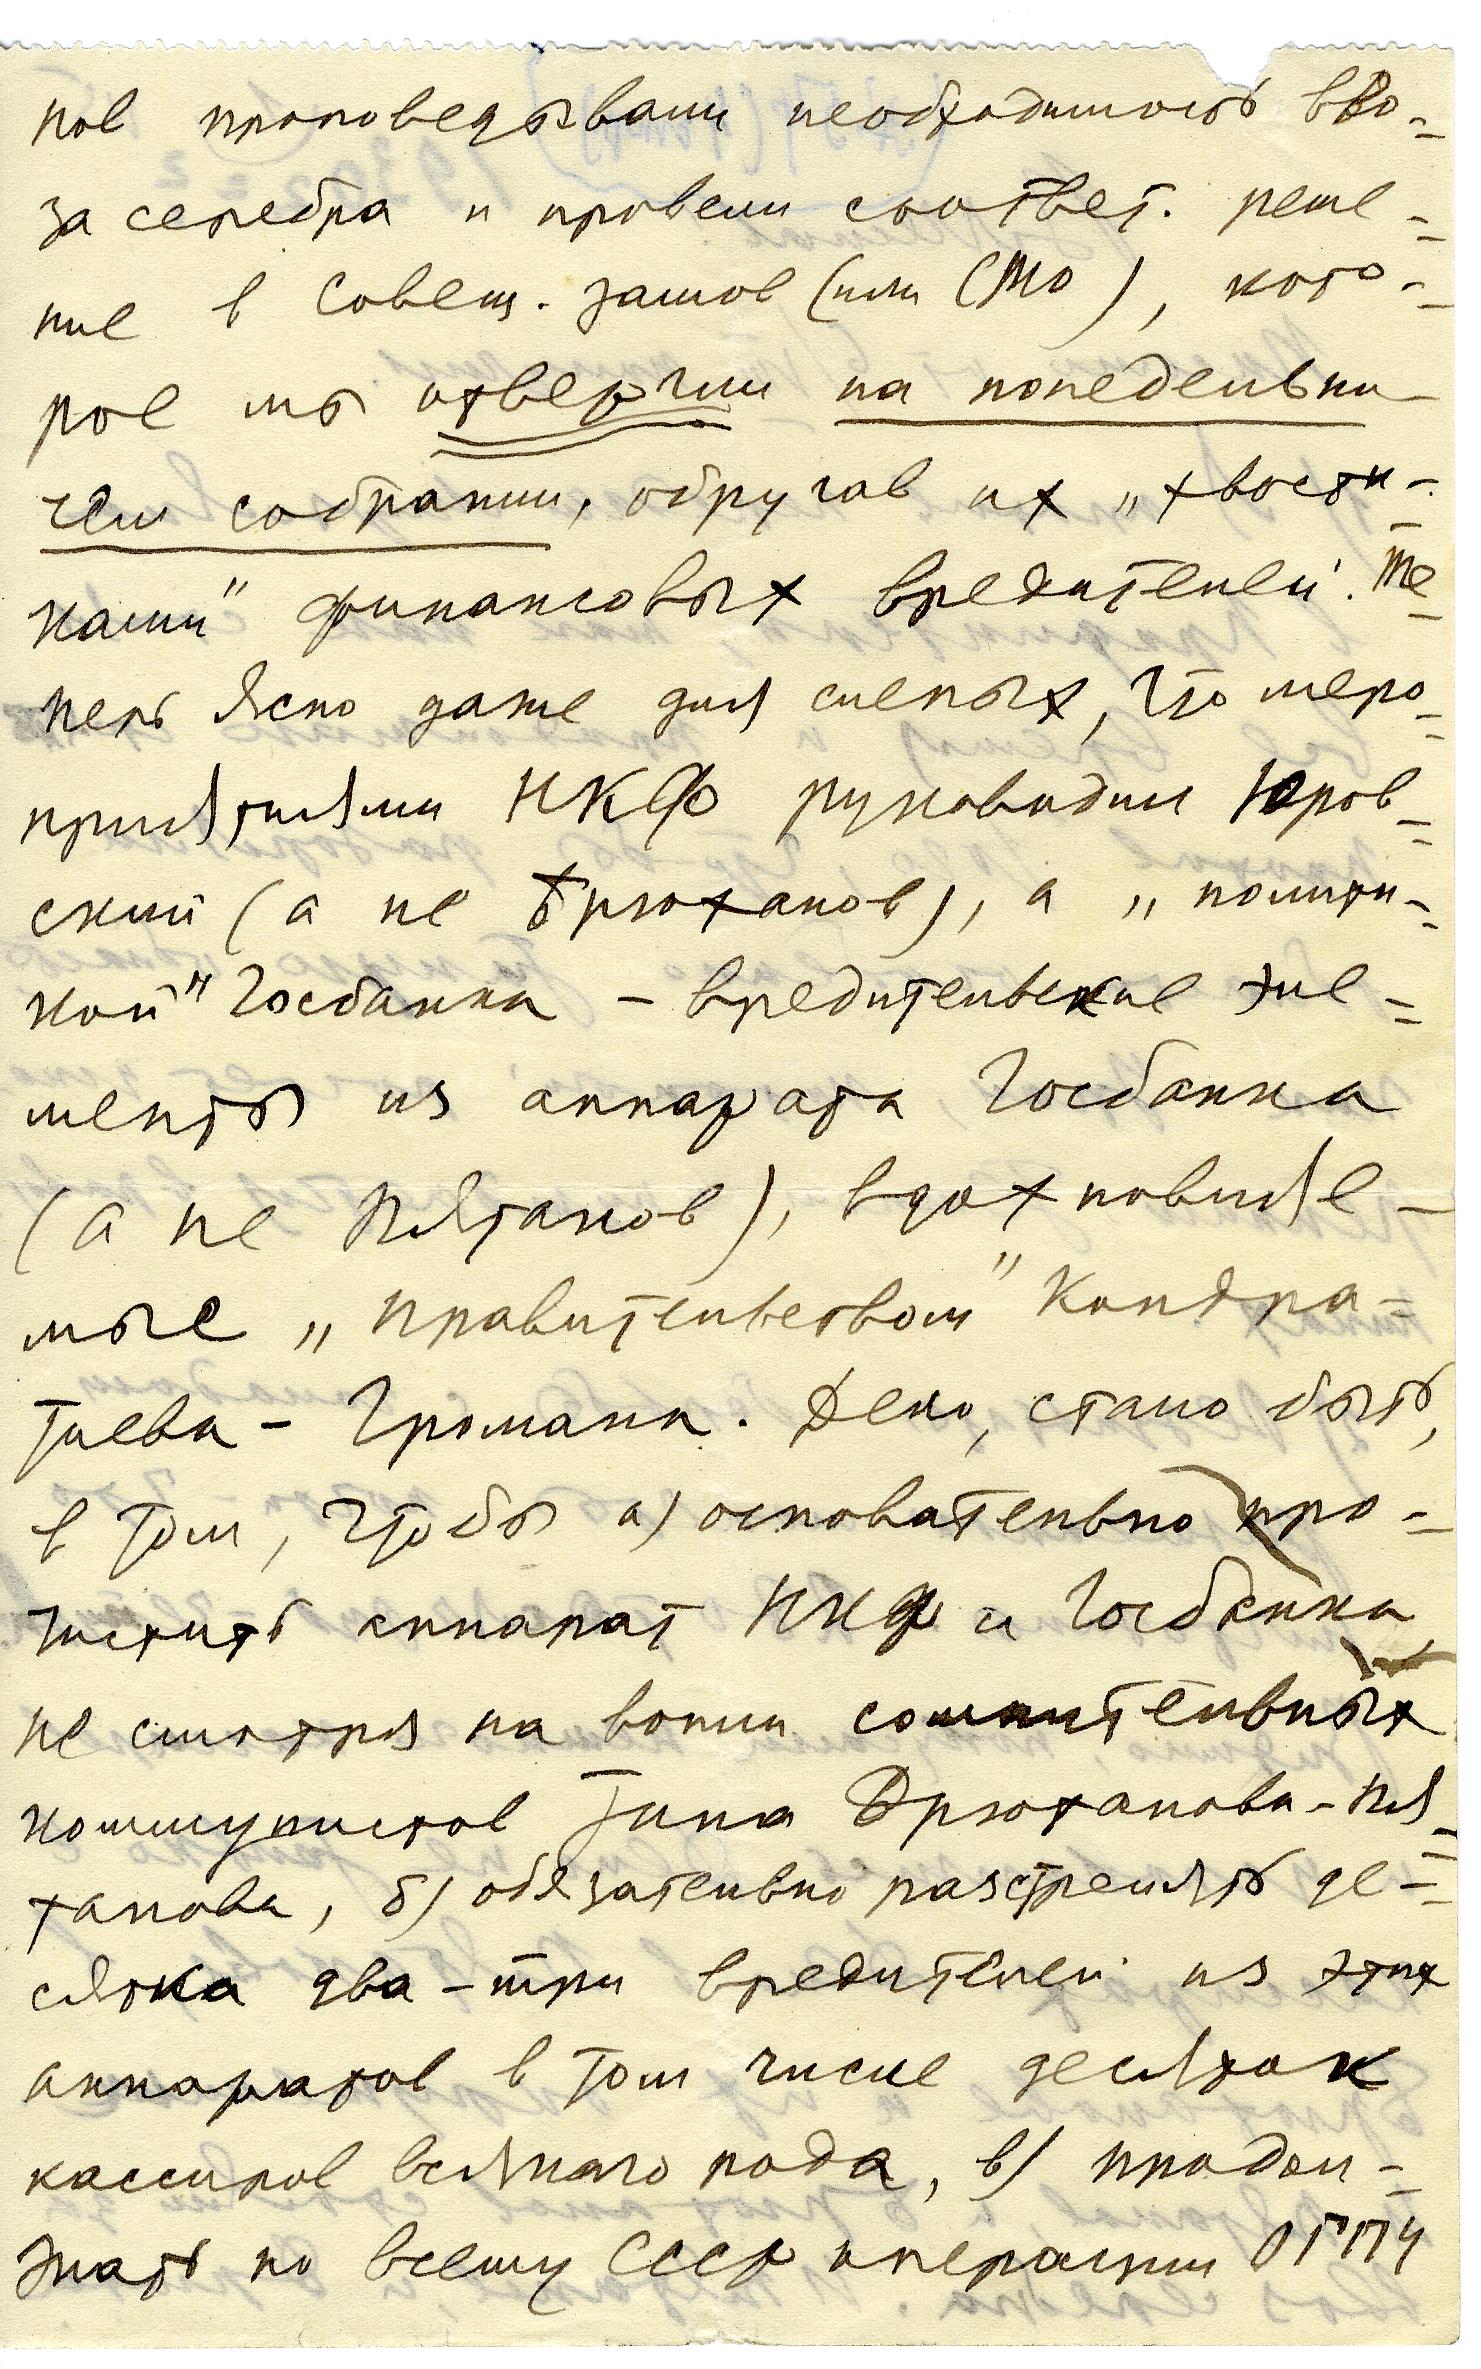 ков проповедывали необходимость вво-
за серебра и провели соответ. реше-
ние в Совещ. замов (или СТО), кото-
рое мы отвергли на понедельни-
чем собрании, обругав их „хвости-
ками" финансовых вредителей. Те-
перь ясно даже для слепых, что меро-
приятиями НКФ руководил Юров-
ский (а не Брюханов), а „полити-
кой" Госбанка – вредительские эле-
менты из аппарата Госбанка
(а не Пятаков), вдохновляе-
мые „правительством" Кондра-
тьева – Громана. Дело, стало быть,
в том, чтобы а) основательно про-
чистить аппарат НКФ и Госбанка,
не смотря на вопли сомнительных
коммунистов типа Брюханова-Пя-
такова, б) обязательно разстрелять де-
сятка два-три вредителей из этих
аппаратов в том числе десяток
кассиров всякого рода, в) продол-
жать по всему СССР операции ОГПУ